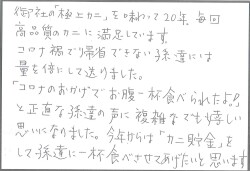 御社の「極上カニ」を味わって20年 毎回
高品質のカニに満足しています。
コロナ禍で帰省できない孫達には
量を倍にして送りました。
「コロナのおかげでお腹一杯食べられたよ!!」
と正直な孫達の声に複雑なでも嬉しい
思いになりました。今年からは「カニ貯金」を
して孫達に一杯食べさせてあげたいと思います